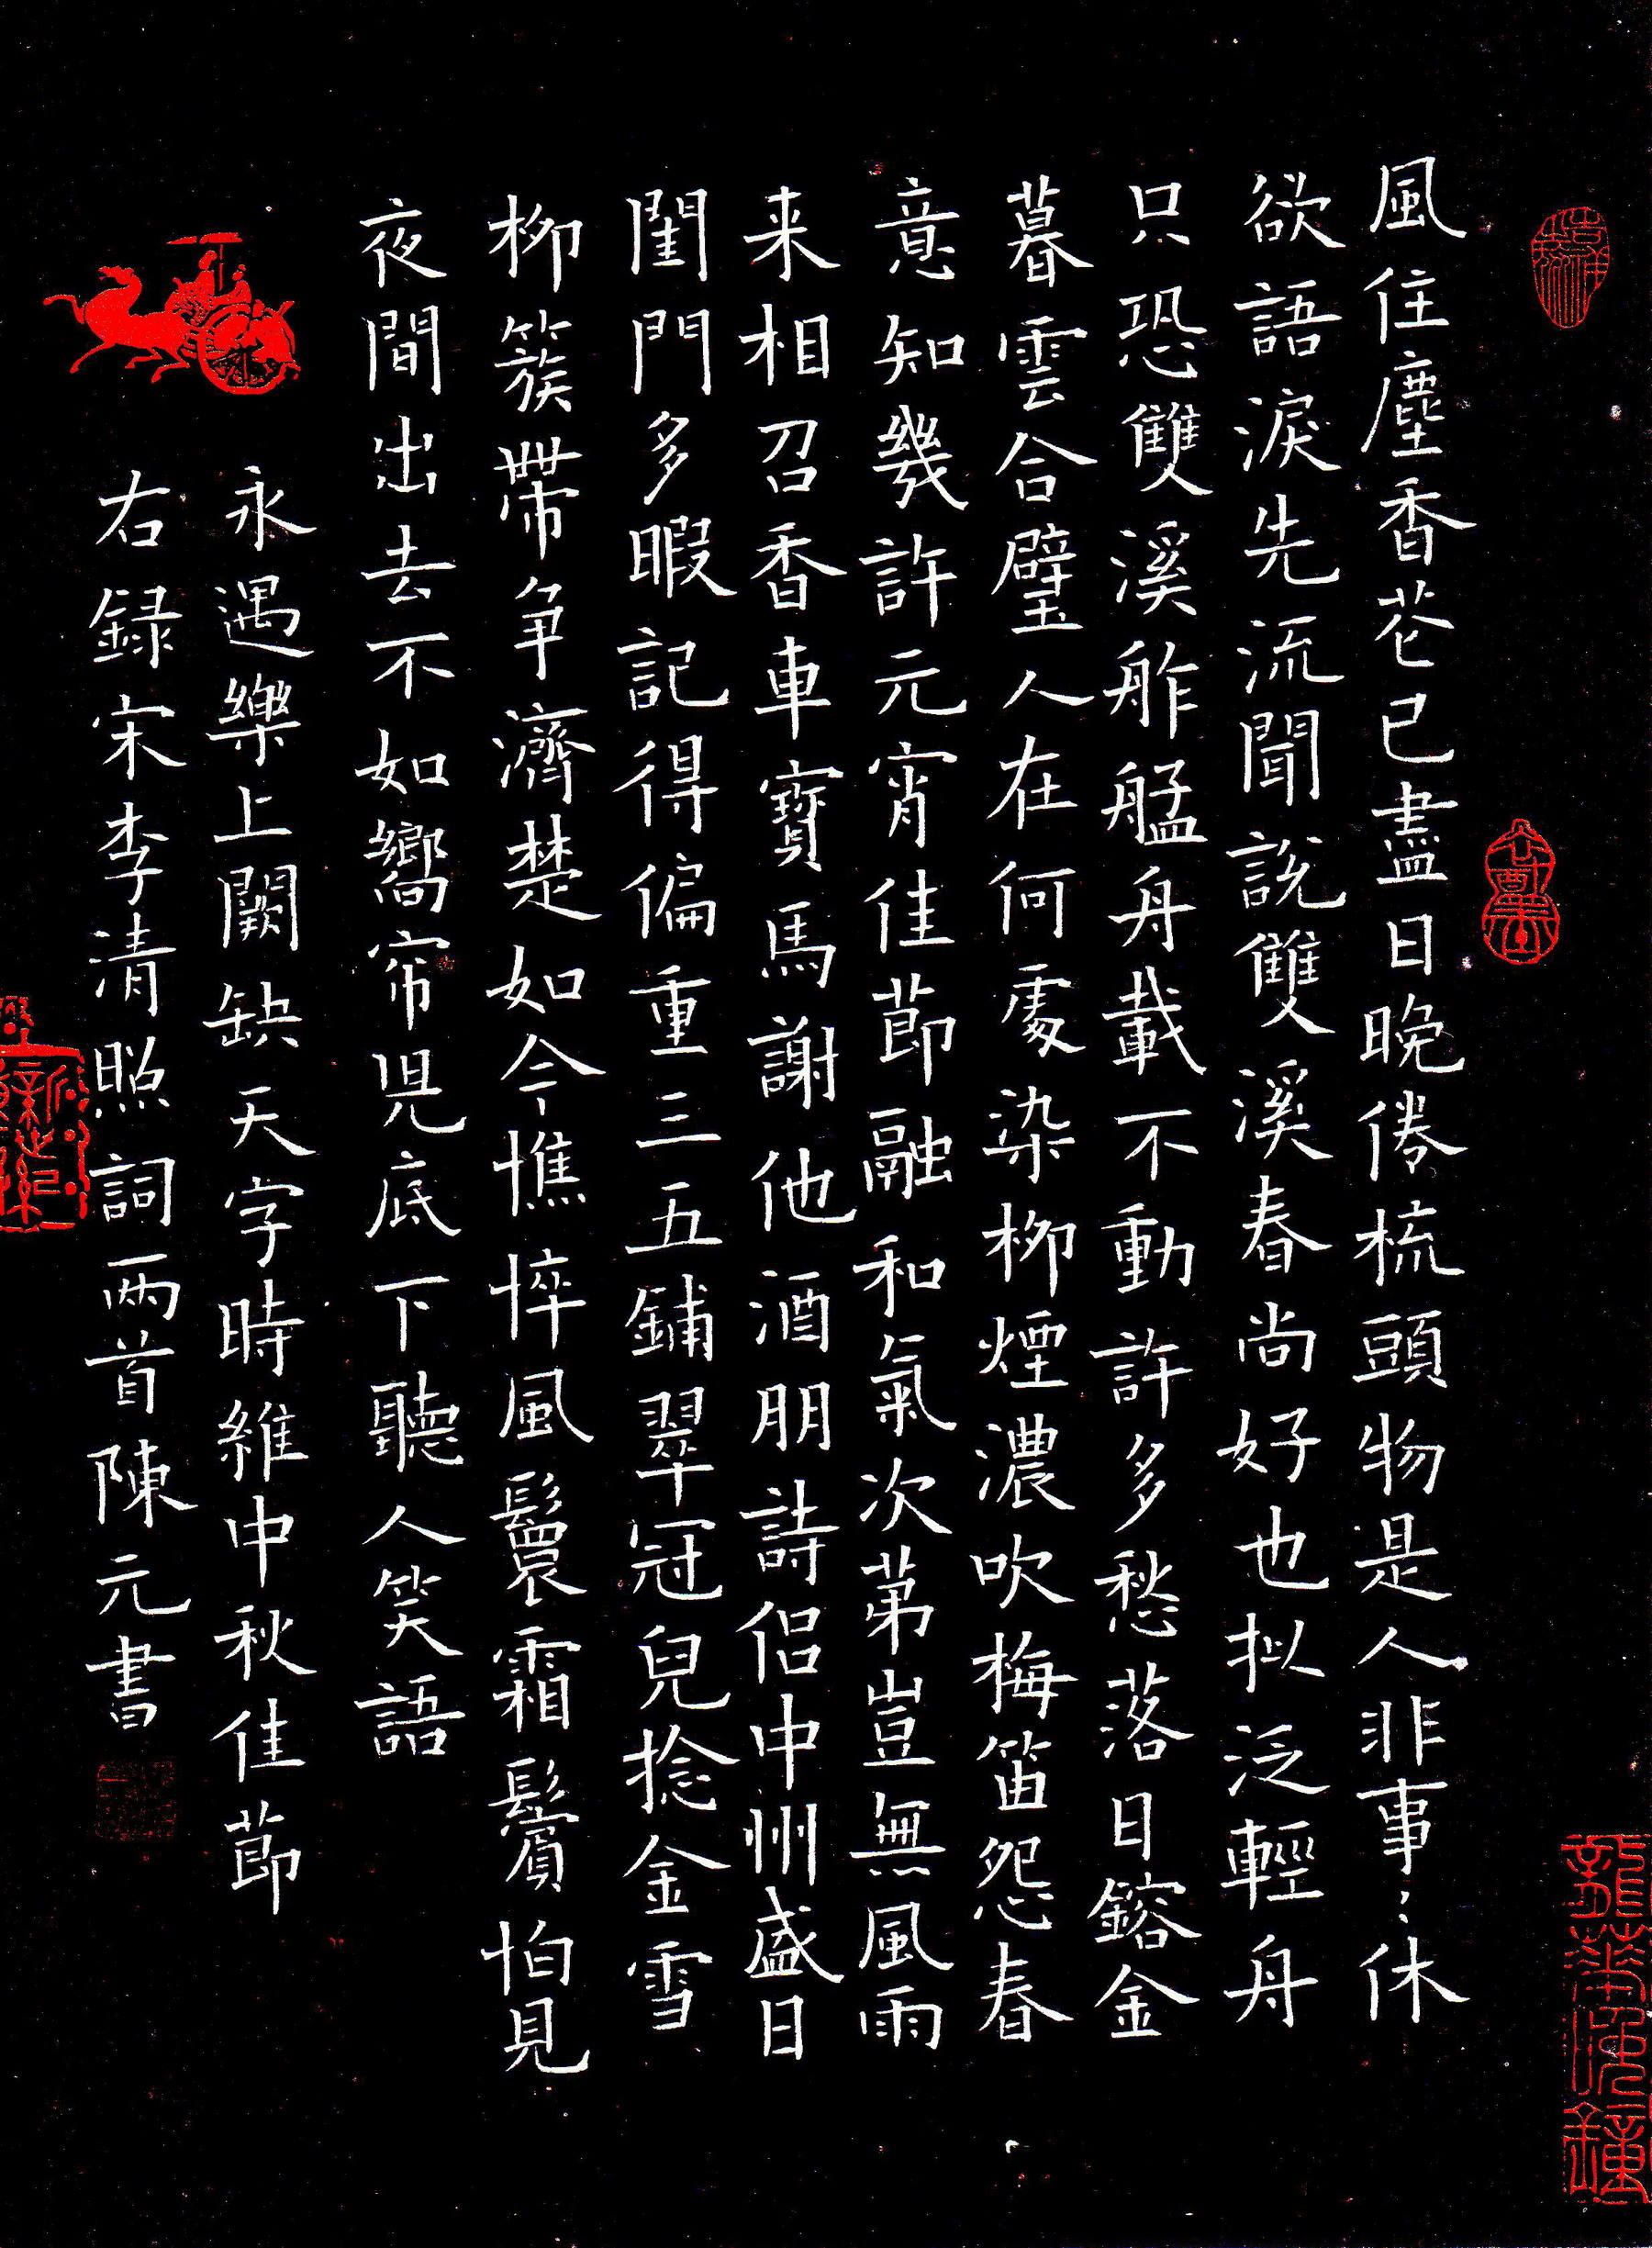 風住塵香花已盡日晚倦梳頭物是人非事〻休
欲語淚先流聞說雙溪春尚好也拟泛輕舟
只恐雙溪舴艋舟載不動許多愁落日鎔金
暮雲合璧人在何處染柳煙濃吹梅笛怨春
意知幾許元宵佳節融和氣次第豈無風雨
来相召香車寶馬謝他酒朋詩侣中州盛日
閨門多暇記得偏重三五鋪翠冠兒捻金雪
柳簇帶争濟楚如今憔悴風鬟霜鬢怕見
夜間出去不如嚮帘児底下聽人笑語
永遇樂上闕缺天字時維中秋佳節
右録宋李清照詞兩首陳元書